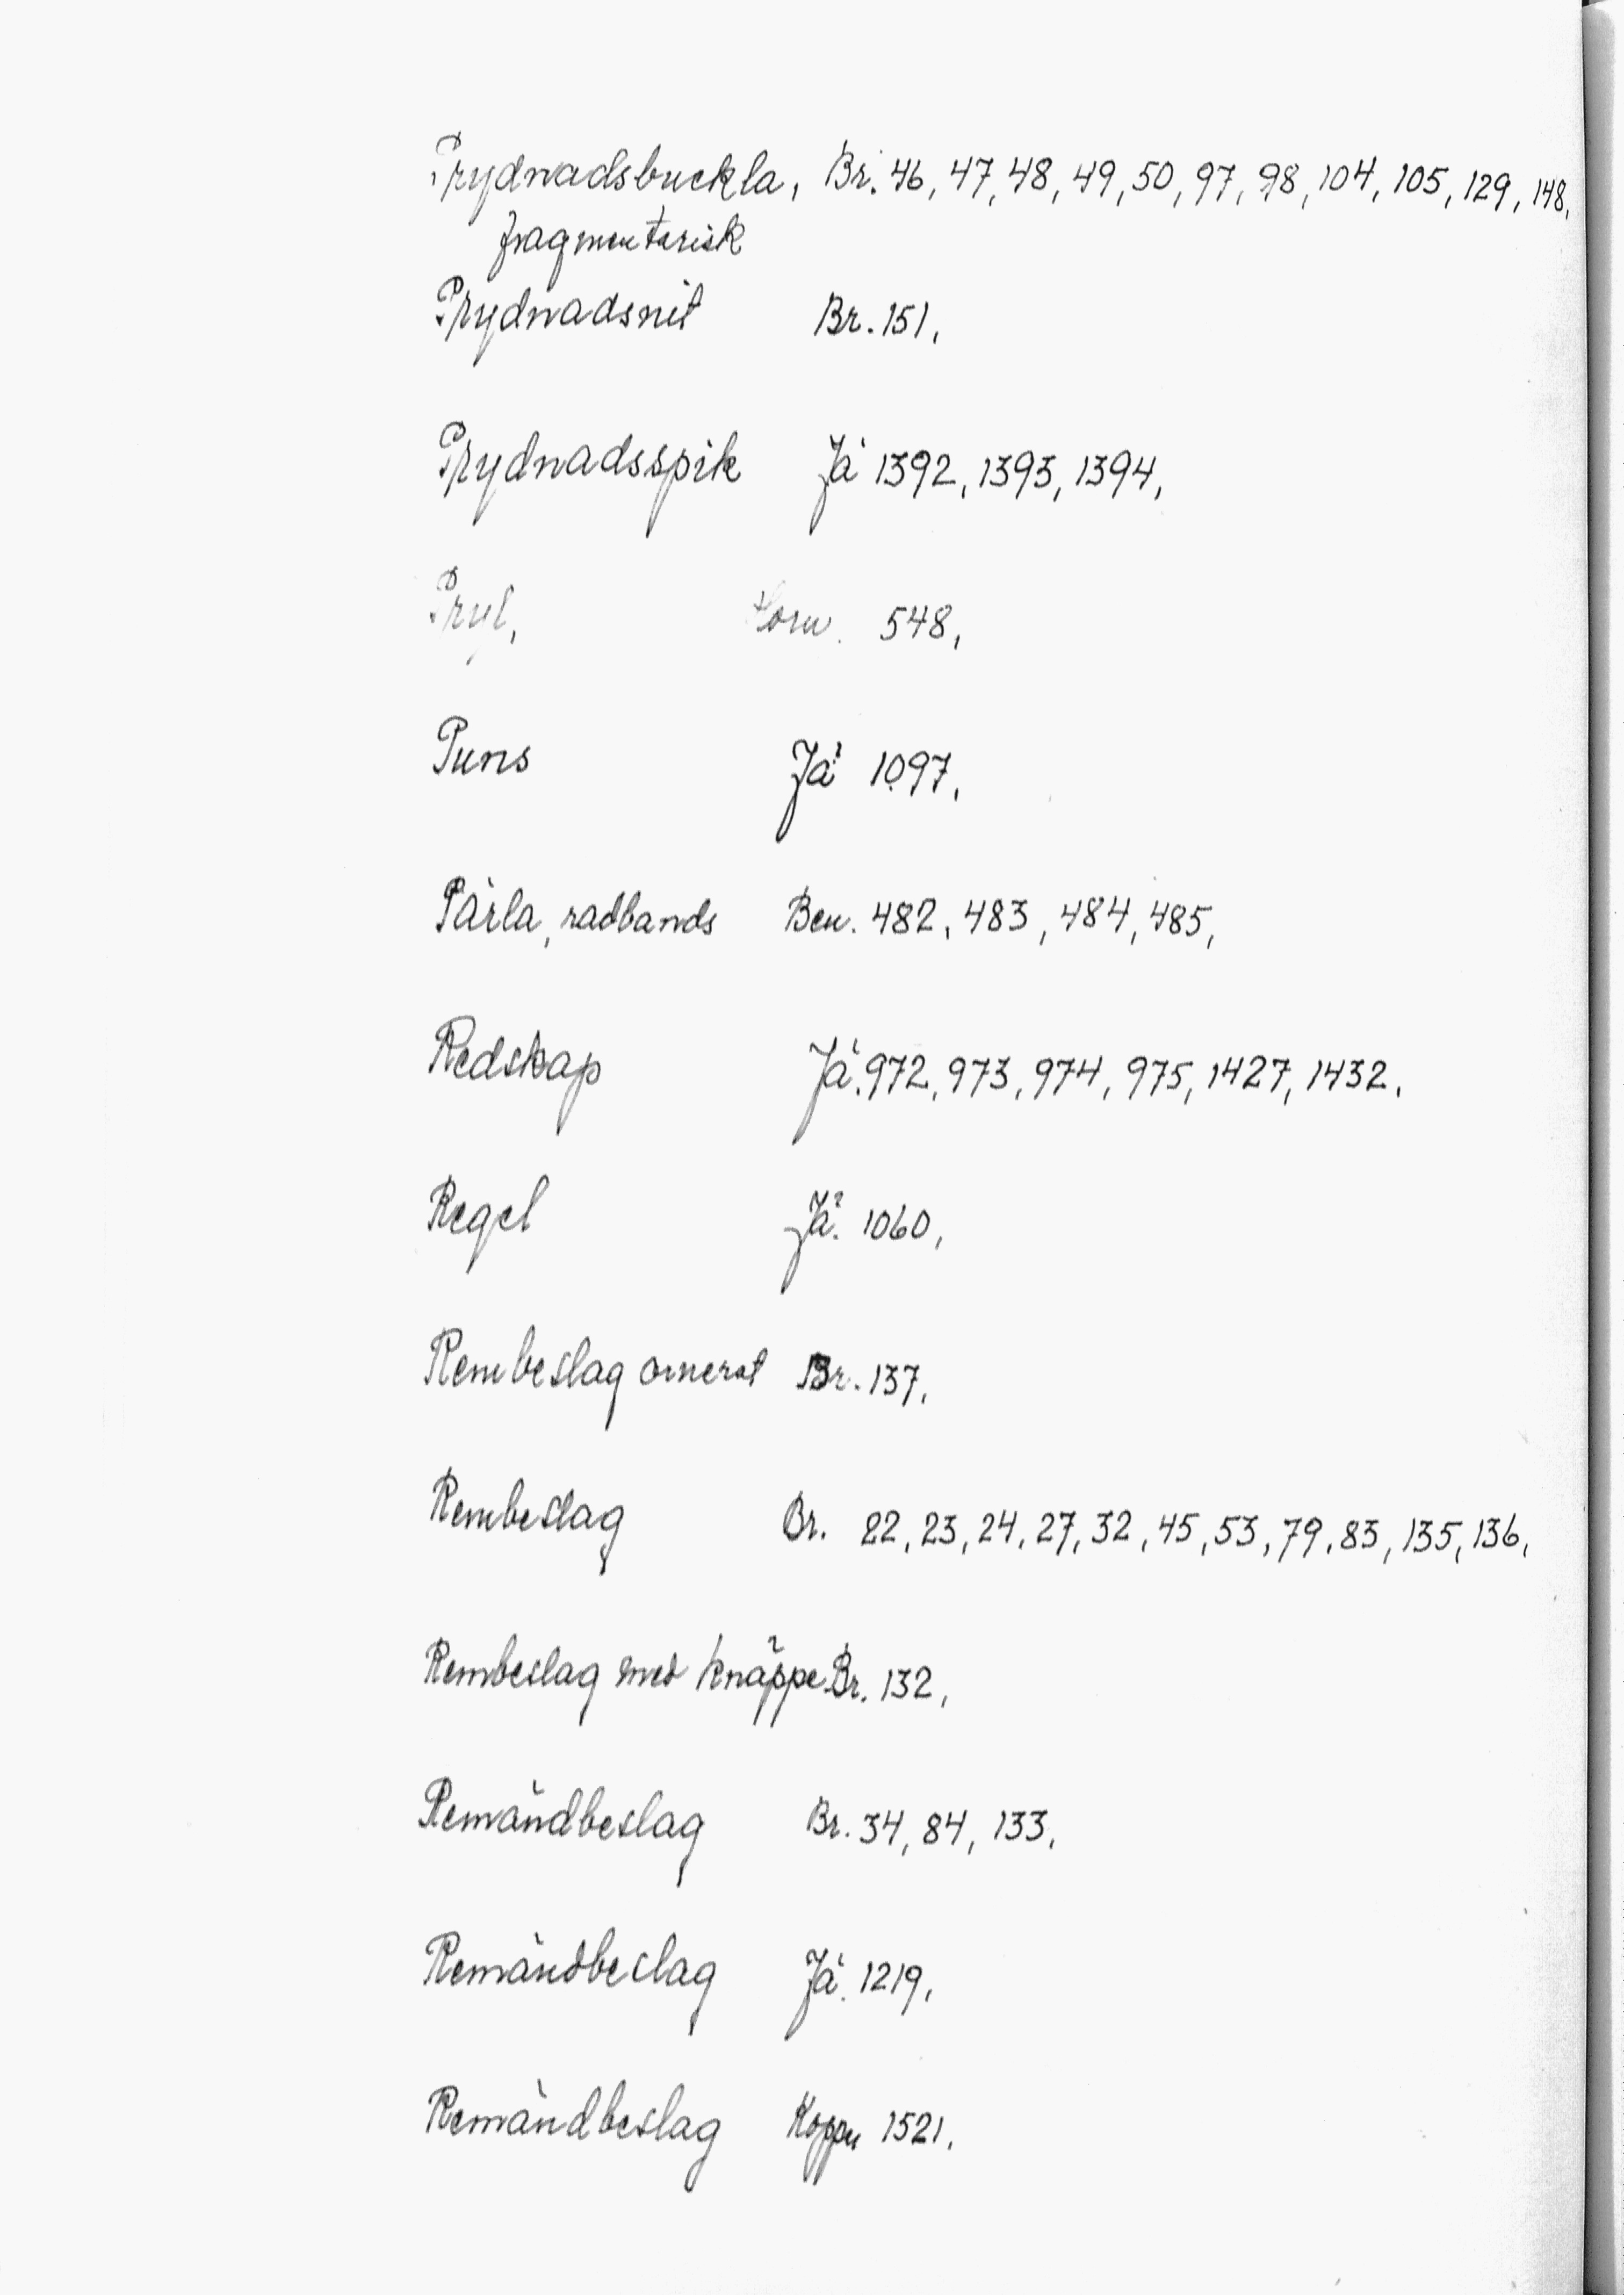 Prydnadsbuckla, Br. 46, 47, 48, 49, 50, 97, 98, 104, 105, 129, 148,
fragmentarisk
Prydnadsnit Br. 151,
Prydnadsspik Jä 1392, 1393, 1394,
Pryl, Horn. 548,
Puns Jä 1097,
Pärla, radbands Ben. 482, 483, 484, 485,
Redskap Jä. 972, 973, 974, 975, 1427, 1432,
Regel Jä. 1060,
Rembeslag ornerat Br. 137,
Rembeslag Br. 22, 23, 24, 27, 32, 45, 53, 79, 83, 135, 136,
Rembeslag med knäppe Br. 132,
Remändbeslag Br. 34, 84, 133,
Remändbeslag Jä. 1219,
Remändbeslag Koppar 1521,